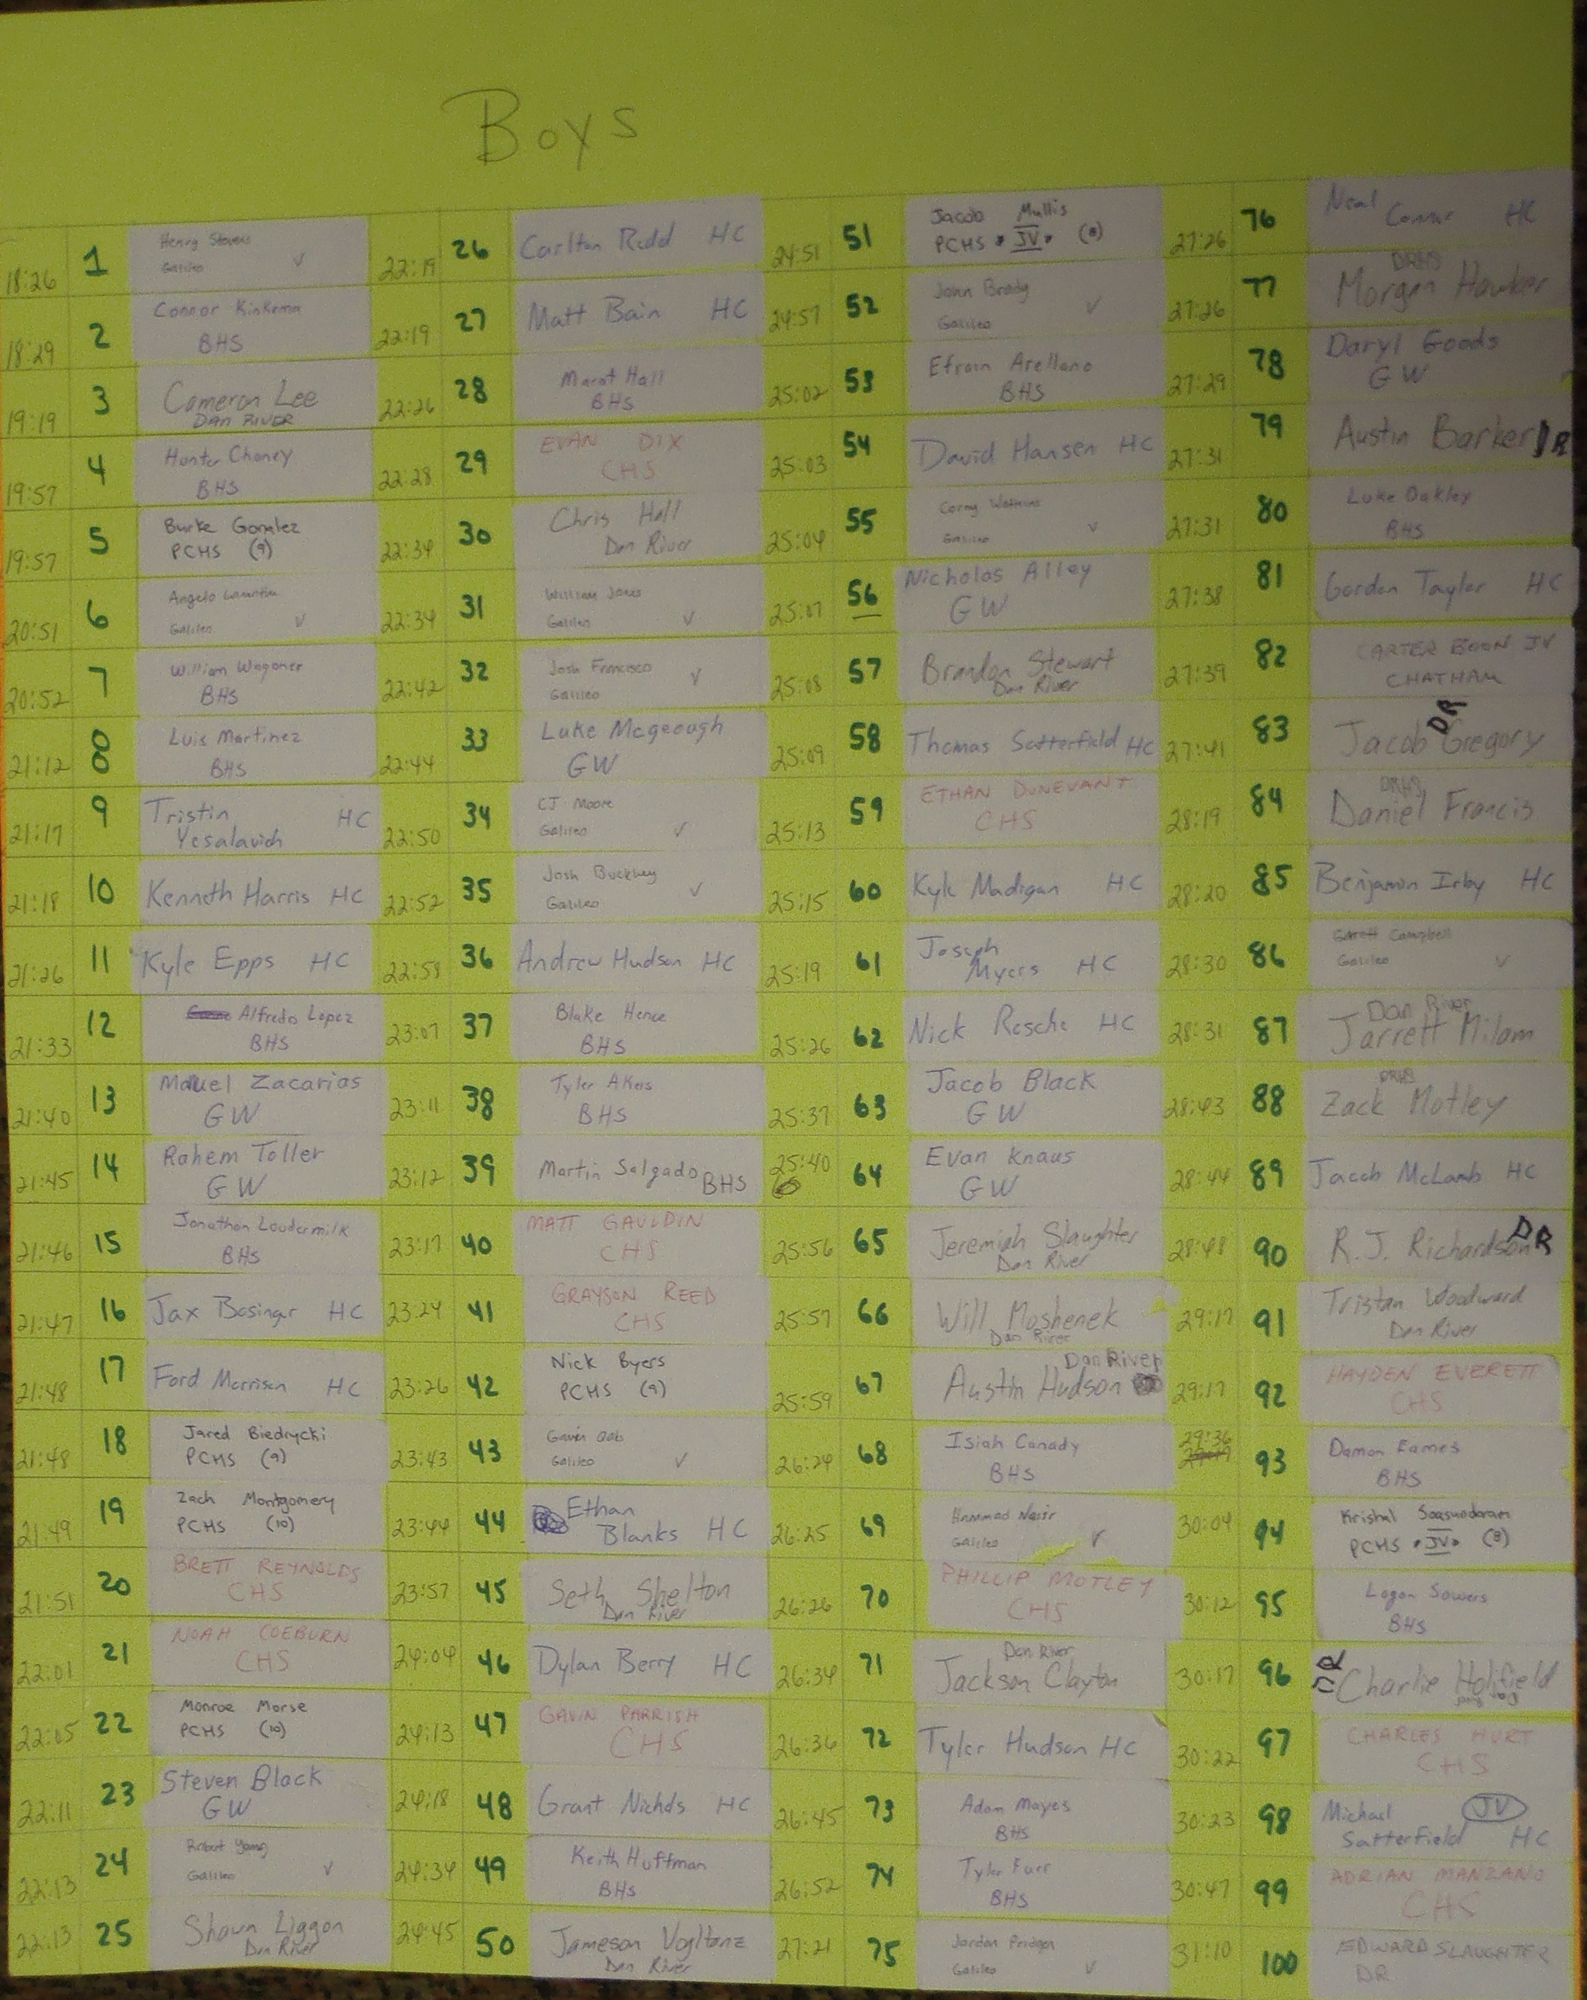 Boys
18:26 1 Henry Stevens
Galileo V
18:29 2 Connor Kinkema
BHS
19:19 3 Cameron Lee
DAN RIVER
19:57 4 Hunter Chaney
BHS
19:57 5 Burke Gonalez
PCHS (9)
20:51 6 Angelo
Galileo V
20:52 7 William Wagoner
BHS
21:12 8 Luis Martinez
BHS
21:17 9 Tristin HC
Yesalavich
21:18 10 Kenneth Harris HC
21:26 11 Kyle Epps HC
21:33 12 Alfredo Lopez
BHS
21:40 13 Manuel Zacarias
GW
21:45 14 Rahem Toller
GW
21:46 15 Jonathan Loudermilk
BHS
21:47 16 Jax Basinger HC
21:48 17 Ford Morrison HC
21:48 18 Jared Biedrycki
PCHS (9)
21:49 19 Zach Montgomery
PCHS (10)
21:51 20 BRETT REYNOLDS
CHS
22:01 21 NOAH COEBURN
CHS
22:05 22 Monroe Morse
PCHS (10)
22:11 23 Steven Black
GW
22:13 24 Robert Young
Galileo V
22:13 25 Shaun Liggon
Dan River
22:19 26 Carlton Rudd HC
22:19 27 Matt Bain HC
22:26 28 Marat Hall
BHS
22:28 29 EVAN DIX
CHS
22:34 30 Chris Hall
Dan River
22:34 31 William Jones
Galileo V
22:42 32 Josh Francisco V
Galileo
22:44 33 Luke Mcgeough
GW
22:50 34 CJ Moore
Galileo V
22:52 35 Josh Buckley V
Galileo
22:58 36 Andrew Hudson HC
23:07 37 Blake Hence
BHS
23:11 38 Tyler Akers
BHS
23:12 39 Martin Salgado BHS
23:17 40 MATT GAULDIN
CHS
23:24 41 GRAYSON REED
CHS
23:26 42 Nick Byers
PCHS (9)
23:43 43 Gavin Oab
Galileo V
23:44 44 Ethan
Blanks HC
23:57 45 Seth Shelton
Dan River
24:04 46 Dylan Berry HC
24:13 47 GAVIN PARRISH
CHS
24:18 48 Grant Nichols HC
24:34 49 Keith Huffman
BHS
24:45 50 Jameson Vogltanz
Dan River
24:51 51 Jacob Mullis
PCHS • JV • (8)
24:57 52 John Brady V
Galileo
25:02 53 Efrain Arellano
BHS
25:03 54 David Hansen HC
25:04 55 Corey Watkins
Galileo V
25:07 56 Nicholas Alley
GW
25:08 57 Brandon Stewart
Dan River
25:09 58 Thomas Satterfield HC
25:13 59 ETHAN DUNEVANT
CHS
25:15 60 Kyle Madigan HC
25:19 61 Joseph
Myers HC
25:26 62 Nick Resche HC
25:37 63 Jacob Black
GW
25:40 64 Evan Knaus
GW
25:56 65 Jeremiah Slaughter
Dan River
25:57 66 Will Moshenek
Dan River
25:59 67 Dan River
Austin Hudson
26:24 68 Isiah Canady
BHS
26:25 69 Hammad Nasir
Galileo V
26:26 70 PHILLIP MOTLEY
CHS
26:34 71 Dan River
Jackson Clayton
26:36 72 Tyler Hudson HC
26:45 73 Adam Mayes
BHS
26:52 74 Tyler Furr
BHS
27:21 75 Jordan Pridgen
Galileo V
27:26 76 Neal
Connor HC
27:26 77 DRHS
Morgan Hawker
27:29 78 Daryl Goods
GW
27:31 79 Austin Barker DR
27:31 80 Luke Oakley
BHS
27:38 81 Gordon Taylor HC
27:39 82 CARTER BOON JV
CHATHAM
27:41 83 DR
Jacob Gregory
28:19 84 DRHS
Daniel Francis
28:20 85 Benjamin Irby HC
28:30 86 Garrett Campbell
Galileo V
28:31 87 Dan River
Jarrett Milam
28:43 88 DRHS
Zack Motley
28:44 89 Jacob McLamb HC
28:48 90 R.J. Richardson DR
29:17 91 Tristan Woodward
Dan River
29:17 92 HAYDEN EVERETT
CHS
29:36 93 Damon Eames
BHS
30:04 94 Krishal
PCHS • JV • (8)
30:12 95 Logan Sowers
BHS
30:17 96 DR Charlie Holifield
30:22 97 CHARLES HURT
CHS
30:23 98 Michael JV
Satterfield HC
30:47 99 ADRIAN MANZANO
CHS
31:10 100 EDWARD SLAUGHTER
DR